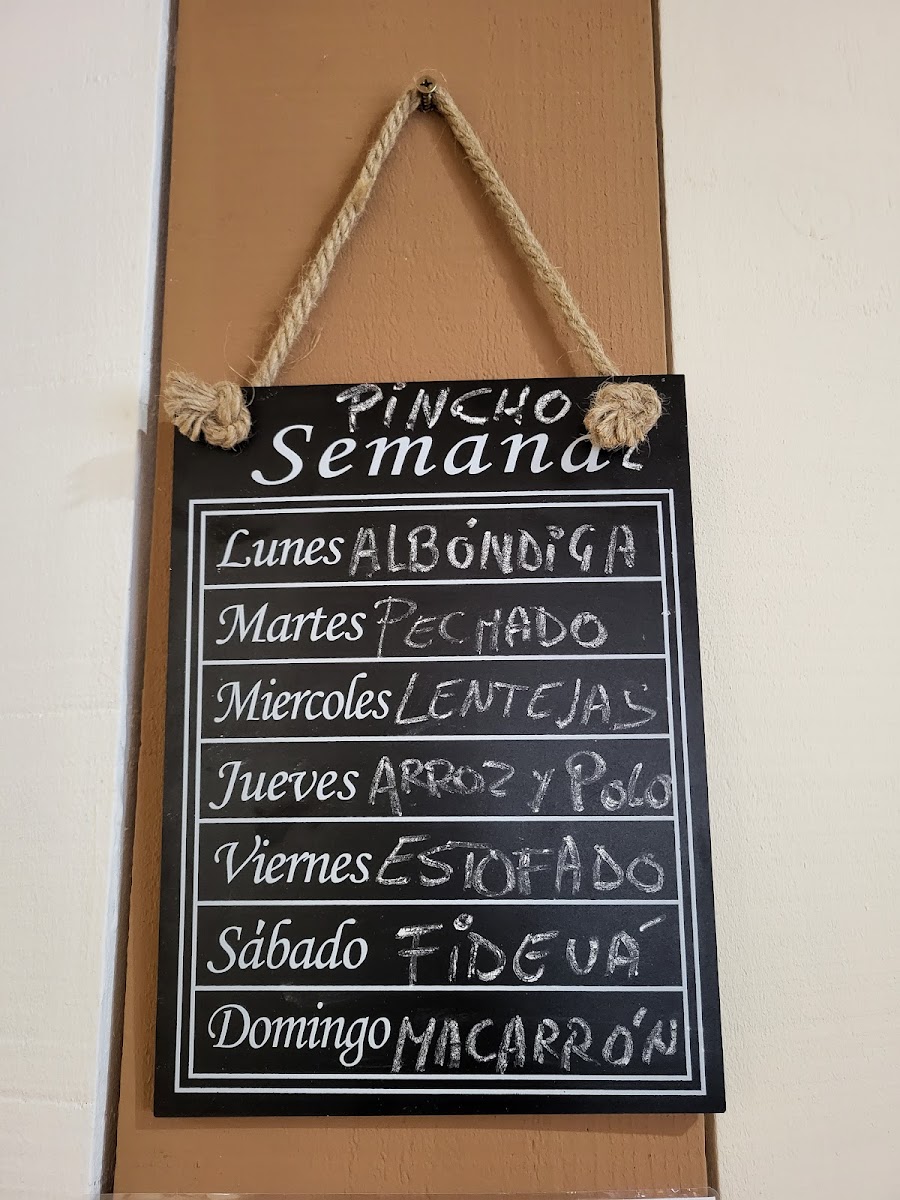 PINCHO
Semanal
Lunes ALBÓNDIGA
Martes PECHADO
Miercoles LENTEJAS
Jueves ARROZ Y POLO
Viernes ESTOFADO
Sábado FIDEUÁ
Domingo MACARRÓN